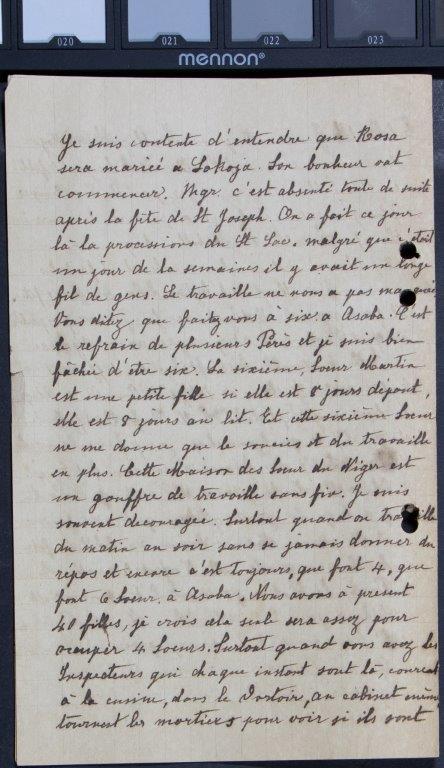 020 021 022 023
mennon®
Je suis contente d'entendre que Rosa
sera mariée a Lokoja. Son bonheur vat
commencer. Mgr. c'est absenté toute de suite
après la fête de St Joseph. On a fait ce jour
là la processions du St Sac. malgré que c'était
un jour de la semaines il y avait un longe
fil de gens. Le travaille ne nous a pas manquée
Vous ditez que faitz vous a six a Asaba. C'est
le refrain de plusieurs Pères et je suis bien
fâchée d'être six. La sixième, Soeur Martin
est une petite fille si elle est 8 jours dépout,
elle est 8 jours au lit. Et cette sixième Soeur
ne me donne que le soucies et du travaille
en plus. Cette Maison des Soeur du Niger est
un gouffre de travaille sans fin. Je suis
souvent decouragée. Surtout quand on travaille
du matin au soir sans se jamais donner du
répos et encore c'est toujours, que font 4, que
font 6 Soeur. à Asaba. Nous avons à présent
40 filles, je crois cela seule sera assez pour
occuper 4 Soeurs. Surtout quand vous avez les
Inspecteurs qui chaque instant sont là, courent
à la cuisine, dans le Dortoir, au cabinet même
tournent les mortiers pour voir si ils sont